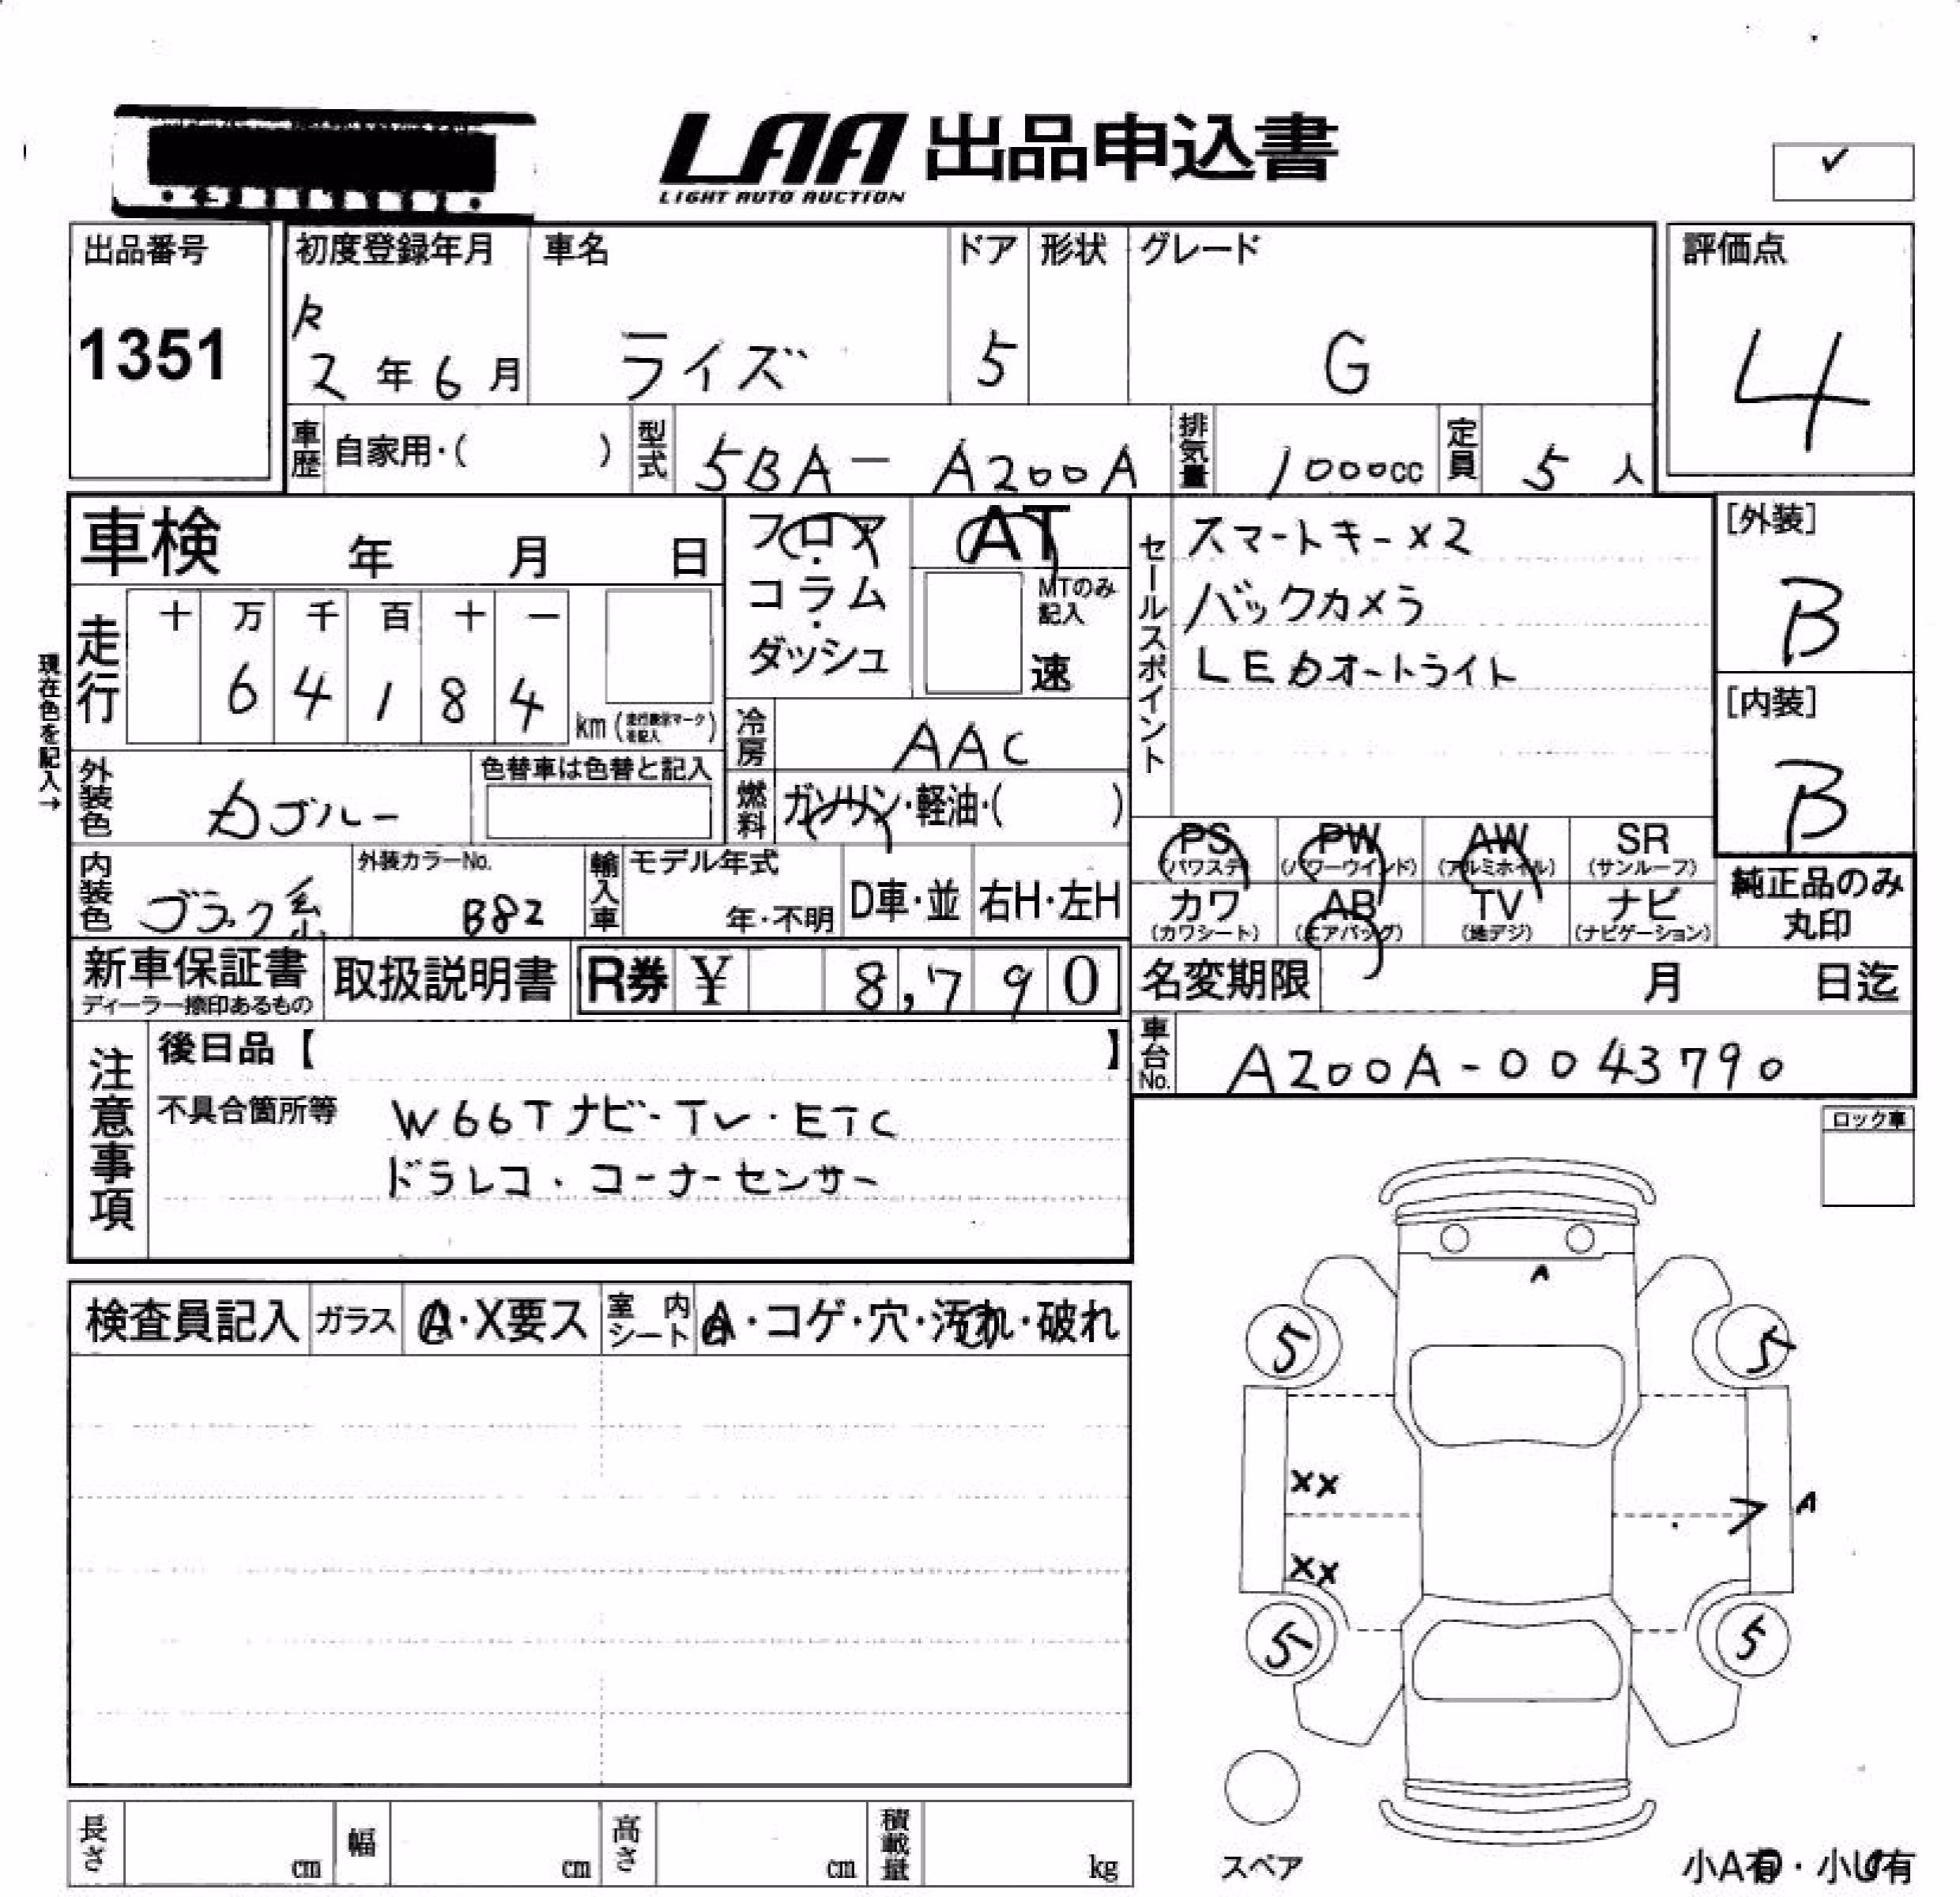 LAA 出品申込書
LIGHT AUTO AUCTION
✓
出品番号
1351
初度登録年月
R
2年6月
車名
ライズ
ドア
5
形状
グレード
G
評価点
4
車歴 自家用・( )
型式 5BA-A200A
排気量 1000cc
定員 5人
車検 年 月 日
フロア・コラム・ダッシュ
AT
MTのみ記入
速
セールスポイント
スマートキー×2
バックカメラ
LEDオートライト
[外装]
B
[内装]
B
現在色を記入→
走行
十 万 千 百 十 一
6 4 1 8 4
km
冷房 AAC
外装色
ブルー
色替車は色替と記入
燃料 ガソリン・軽油・( )
PS (パワステ)
PW (パワーウインド)
AW (アルミホイル)
SR (サンルーフ)
カワ (カワシート)
AB (エアバッグ)
TV (地デジ)
ナビ (ナビゲーション)
純正品のみ
丸印
内装色 ブラック系
外装カラーNo.
B82
輸入車
モデル年式
年・不明
D車・並
右H・左H
新車保証書
ディーラー捺印あるもの
取扱説明書
R券 ¥ 8,790
名変期限 月 日迄
車台No. A200A-0043790
注意事項
後日品【 】
不具合箇所等 W66Tナビ・TV・ETC
ドラレコ・コーナーセンサー
ロック車
検査員記入
ガラス A・X要ス
室内シート A・コゲ・穴・汚れ・破れ
A
5 5
XX
A
XX
5 5
スペア
長さ cm
幅 cm
高さ cm
積載量 kg
小A有・小U有